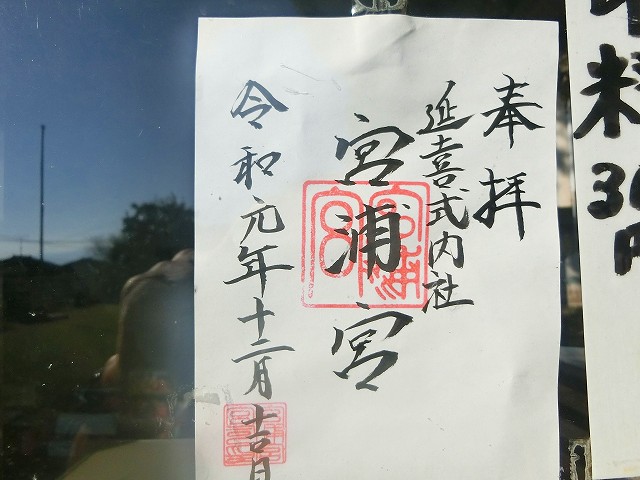 奉拝
延喜式内社
宮浦宮
宮浦宮
令和元年十二月吉日
料
30
円